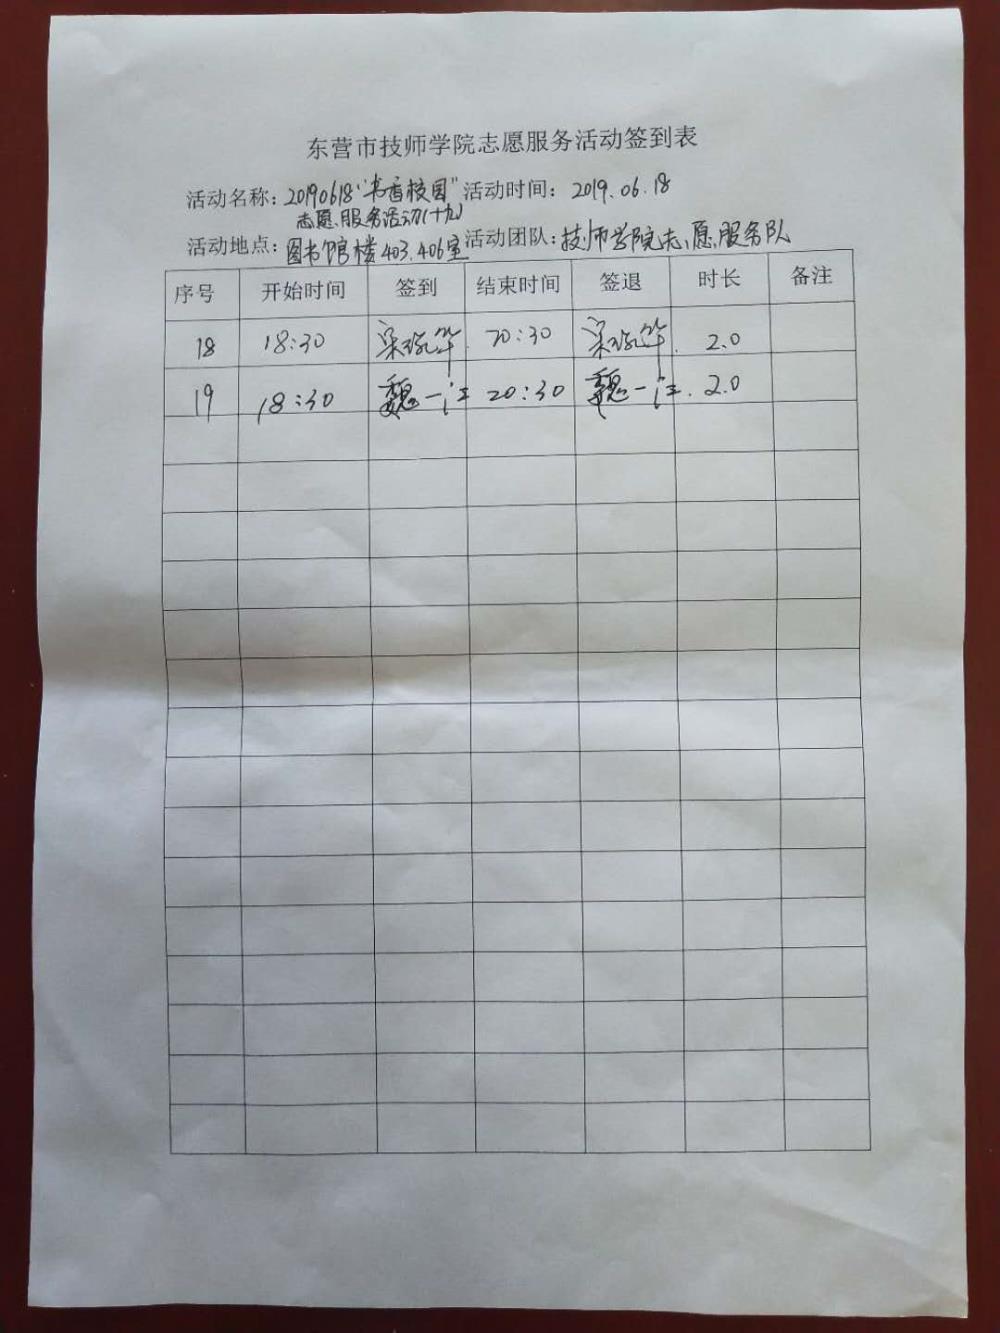 东营市技师学院志愿服务活动签到表
活动名称：20190618“书香校园” 活动时间：2019.06.18
志愿服务活动(十九)
活动地点：图书馆楼403.406室 活动团队：技师学院志愿服务队
序号 开始时间 签到 结束时间 签退 时长 备注
18 18:30 20:30 2.0
19 18:30 魏一江 20:30 魏一江. 2.0